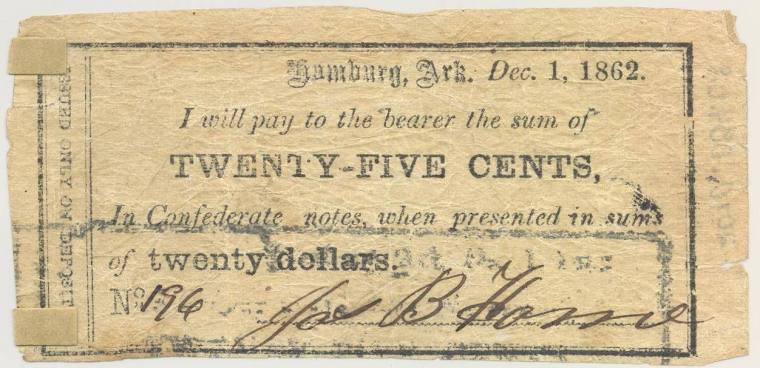 Hamburg, Ark. Dec. 1, 1862.
I will pay to the bearer the sum of
TWENTY-FIVE CENTS,
In Confederate notes, when presented in sums
of twenty dollars.
No 196 Jas B
ISSUED ONLY ON DEPOSIT